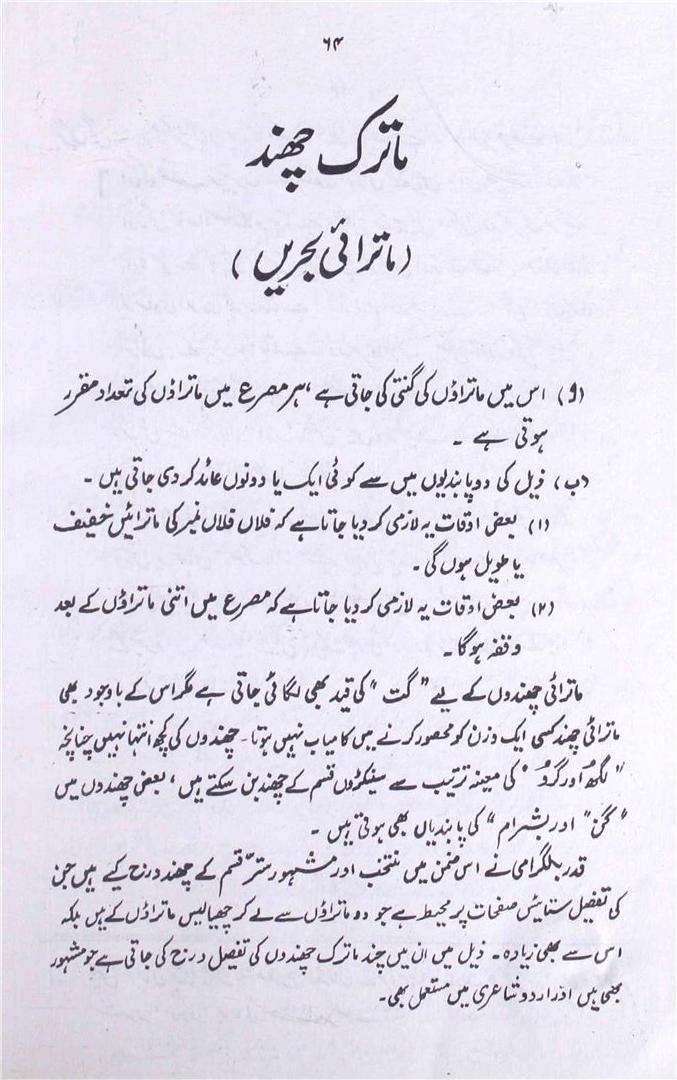 ۶۴
ماترک چھند
(ماترائی بحریں)
(و) اس میں ماتراؤں کی گنتی کی جاتی ہے، ہر مصرع میں ماتراؤں کی تعداد مقرر
ہوتی ہے ۔
(ب) ذیل کی دو پابندیوں میں سے کوئی ایک یا دونوں عائد کر دی جاتی ہیں ۔
(۱) بعض اوقات یہ لازمی کر دیا جاتا ہے کہ فلاں فلاں نمبر کی ماترائیں خفیف
یا طویل ہوں گی ۔
(۲) بعض اوقات یہ لازمی کر دیا جاتا ہے کہ مصرع میں اتنی ماتراؤں کے بعد
وقفہ ہوگا ۔
ماترائی چھندوں کے لیے "گت" کی قید بھی لگائی جاتی ہے مگر اس کے باوجود بھی
ماترائی چھند کسی ایک وزن کو محصور کرنے میں کامیاب نہیں ہوتا ۔ چھندوں کی کچھ انتہا نہیں چنانچہ
"لگھُ اور گُرو" کی معینہ ترتیب سے سینکڑوں قسم کے چھند بن سکتے ہیں، بعض چھندوں میں
"گن" اور بشرام" کی پابندیاں بھی ہوتی ہیں ۔
قدر بلگرامی نے اس ضمن میں منتخب اور مشہور ستّر قسم کے چھند درج کیے ہیں جن
کی تفصیل ستایئس صفحات پر محیط ہے جو دو ماتراؤں سے لے کر چھیالیس ماتراؤں کے ہیں بلکہ
اس سے بھی زیادہ ۔ ذیل میں ان میں چند ماترک چھندوں کی تفصیل درج کی جاتی ہے جو مشہور
بھی ہیں اور اردو شاعری میں مستعمل بھی ۔